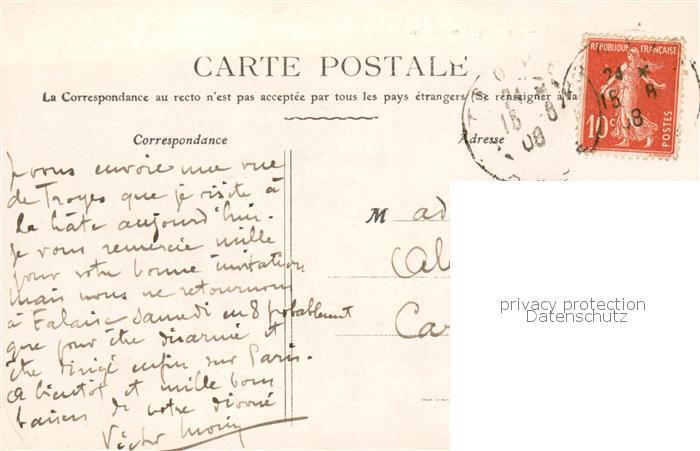 CARTE POSTALE
La Correspondance au recto n'est pas acceptée par tous les pays étrangers (Se renseigner à la
Correspondance
Adresse
RÉPUBLIQUE FRANÇAISE
10c
POSTES
24 *
15 8
08
15 8
08
Je vous envoie une vue
de Troyes que je visite à
la hâte aujourd'hui.
Je vous remercie mille
pour votre bonne invitation
mais nous ne retournons
à Falaise samedi en 8 probablement
que pour être désarmé et
être dirigé enfin sur Paris.
A bientôt et mille bons
baisers de votre
Victor
M ad
Ca
privacy protection
Datenschutz